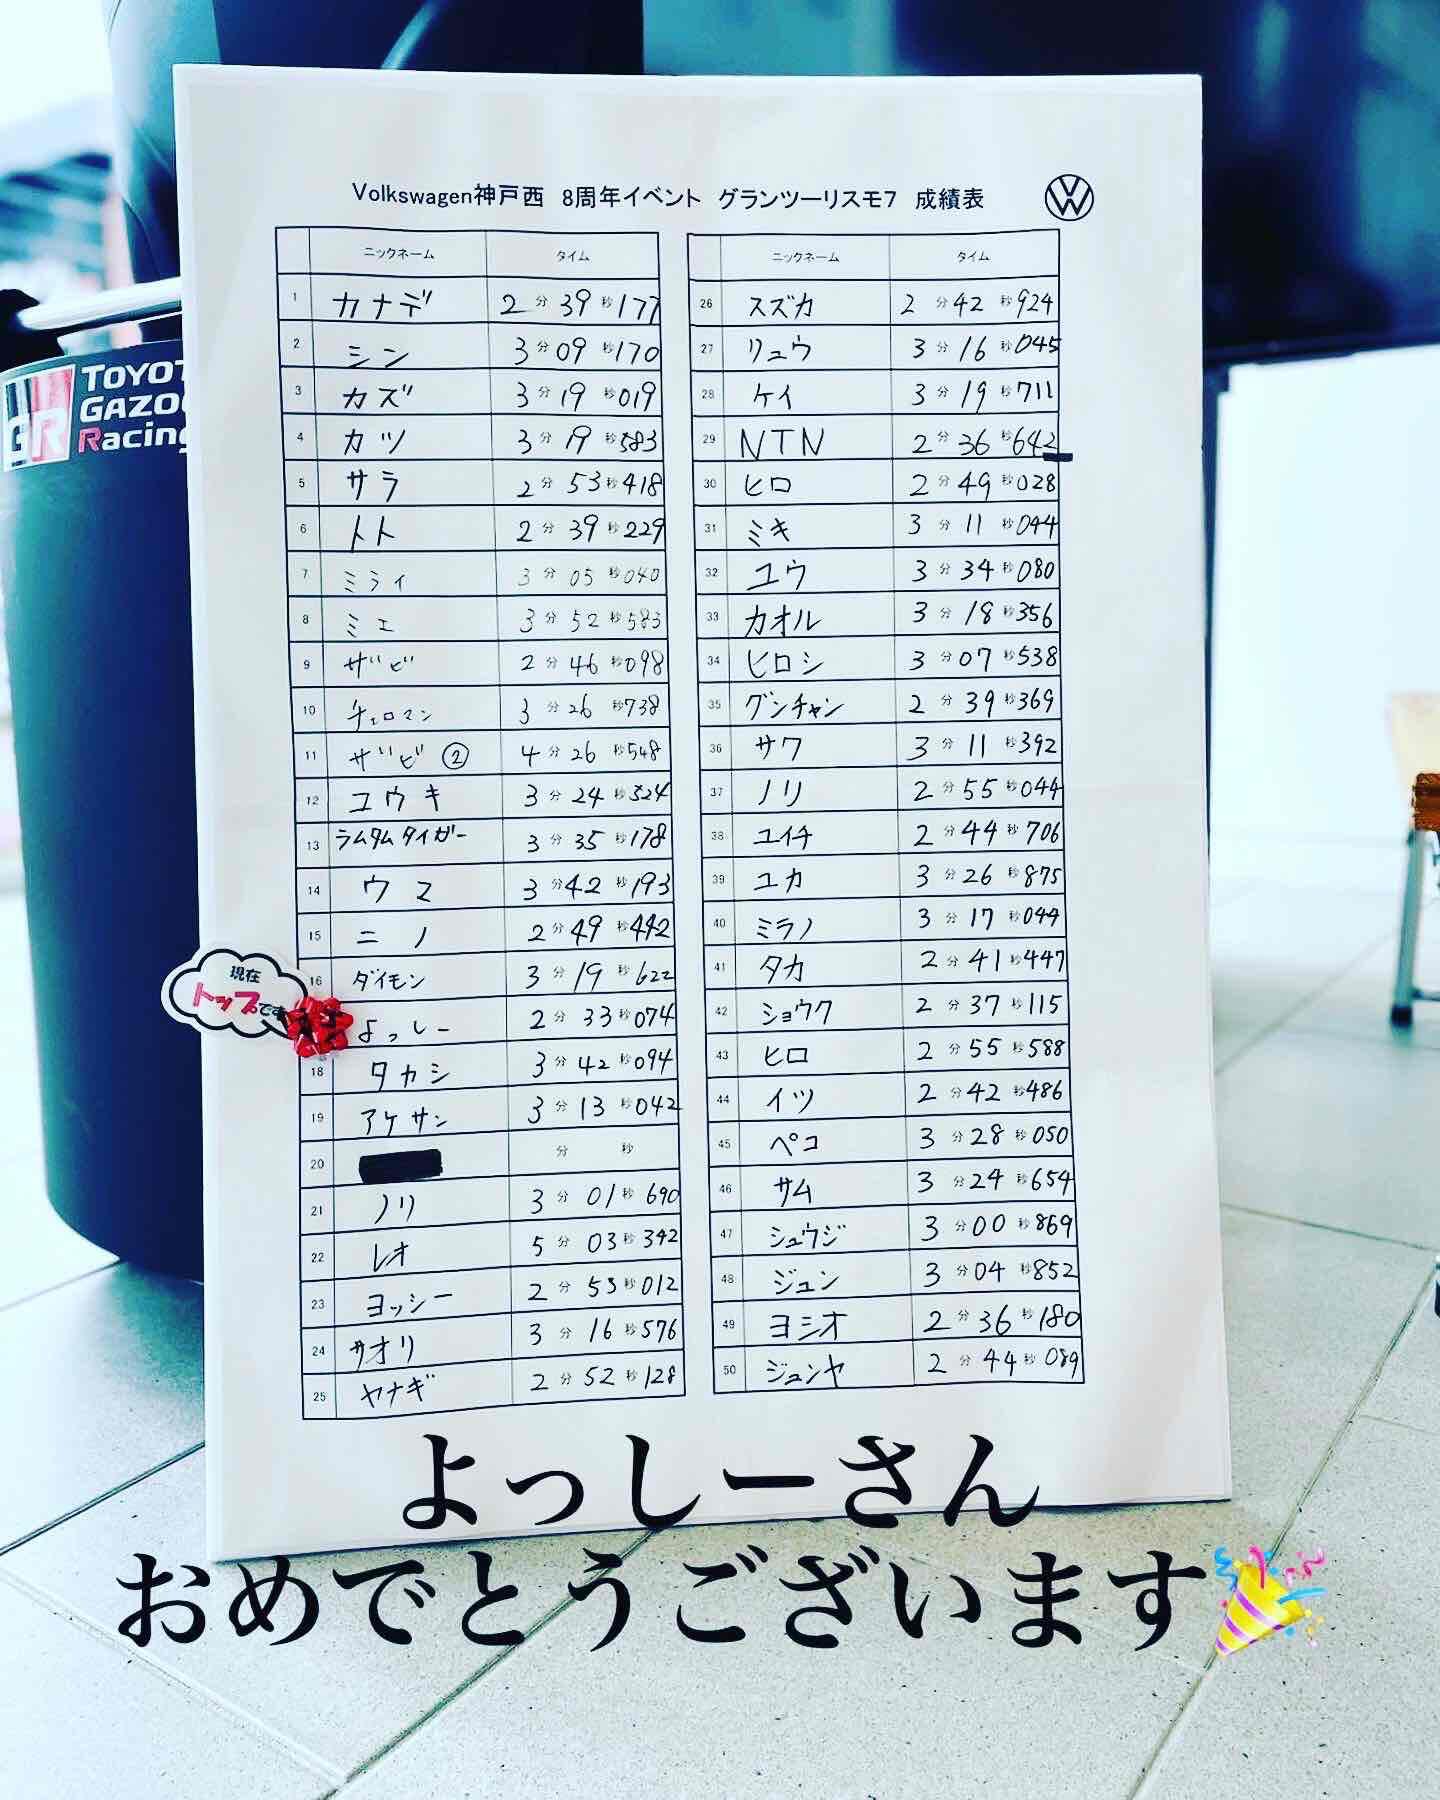 Volkswagen神戸西 8周年イベント グランツーリスモ7 成績表
ニックネーム タイム
1 カナデ 2分39秒177
2 シン 3分09秒170
3 カズ 3分19秒019
4 カツ 3分19秒583
5 サラ 2分53秒418
6 トト 2分39秒229
7 ミライ 3分05秒040
8 ミエ 3分52秒583
9 ザビ 2分46秒098
10 チェロマン 3分26秒738
11 ザビ② 4分26秒548
12 ユウキ 3分24秒524
13 ラムタムタイガー 3分35秒178
14 ウマ 3分42秒193
15 ニノ 2分49秒442
16 ダイモン 3分19秒622
よっしー 2分33秒074
18 タカシ 3分42秒094
19 アケサン 3分13秒042
20 分 秒
21 ノリ 3分01秒690
22 レオ 5分03秒342
23 ヨッシー 2分53秒012
24 サオリ 3分16秒576
25 ヤナギ 2分52秒128
ニックネーム タイム
26 スズカ 2分42秒924
27 リュウ 3分16秒045
28 ケイ 3分19秒711
29 NTN 2分36秒642
30 ヒロ 2分49秒028
31 ミキ 3分11秒044
32 ユウ 3分34秒080
33 カオル 3分18秒356
34 ヒロシ 3分07秒538
35 グンチャン 2分39秒369
36 サワ 3分11秒392
37 ノリ 2分55秒044
38 ユイチ 2分44秒706
39 ユカ 3分26秒875
40 ミラノ 3分17秒044
41 タカ 2分41秒447
42 ショウワ 2分37秒115
43 ヒロ 2分55秒588
44 イツ 2分42秒486
45 ペコ 3分28秒050
46 サム 3分24秒654
47 シュウジ 3分00秒869
48 ジュン 3分04秒852
49 ヨシオ 2分36秒180
50 ジュンヤ 2分44秒089
現在
トップです
GR
TOYOT
GAZOO
Racing
よっしーさん
おめでとうございます